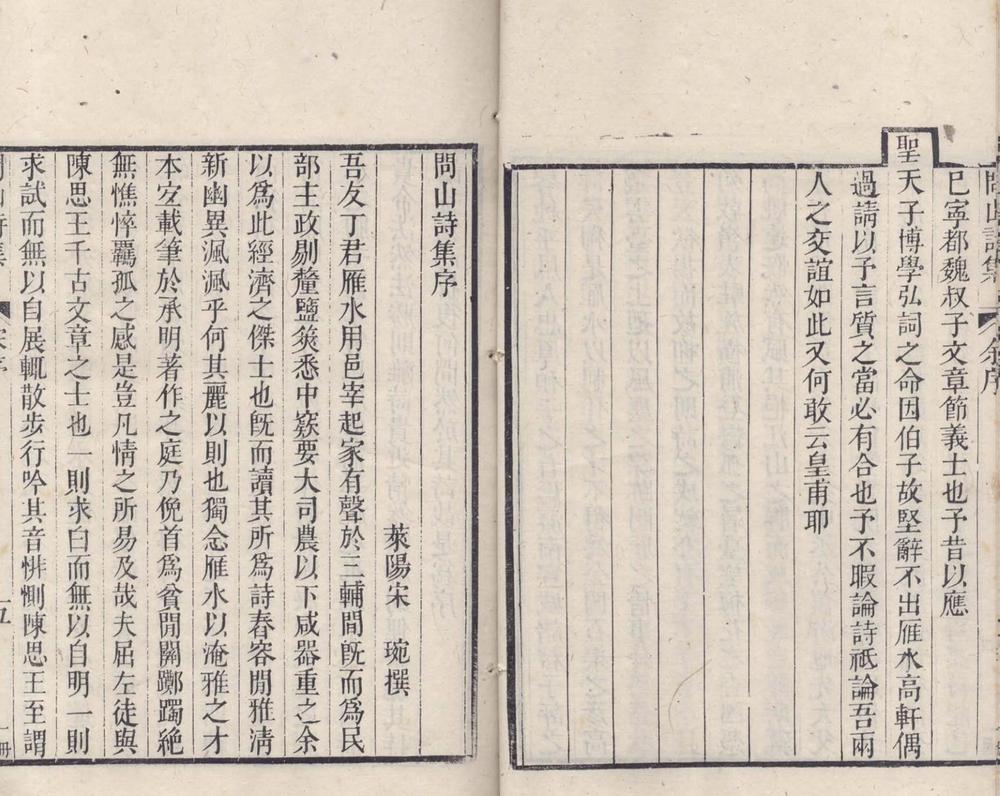 問山詩集
序
已寧都魏叔子文章節義士也予昔以應
聖天子博學弘詞之命因伯子故堅辭不出雁水高軒偶
過請以予言質之當必有合也予不暇論詩祇論吾兩
人之交誼如此又何敢云皇甫耶
問山詩集序
萊陽宋　琬撰
吾友丁君雁水用邑宰起家有聲於三輔間旣而爲民
部主政剔釐鹽筴悉中窾要大司農以下咸器重之余
以爲此經濟之傑士也旣而讀其所爲詩舂容閒雅淸
新幽異渢渢乎何其麗以則也獨念雁水以淹雅之才
本宐載筆於承明著作之庭乃俛首爲貧閒關躑躅絶
無憔悴羈孤之感是豈凡情之所易及哉夫屈左徒與
陳思王千古文章之士也一則求白而無以自明一則
求試而無以自展輒散步行吟其音悱惻陳思王至謂
問山詩集
宋序
一册